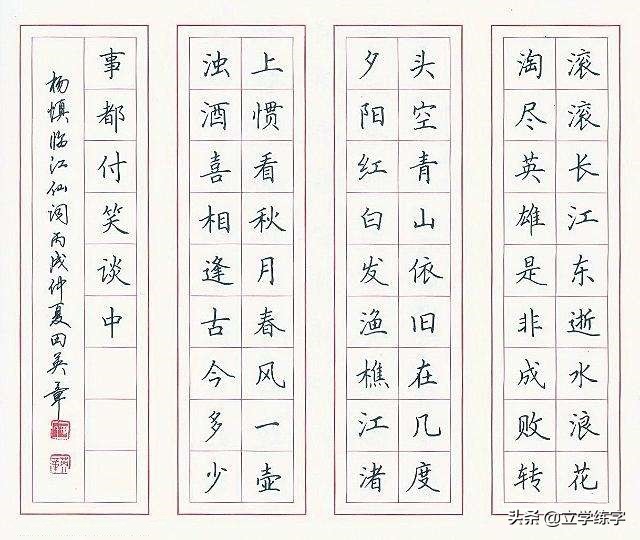 滚滚长江东逝水浪花
淘尽英雄是非成败转
头空青山依旧在几度
夕阳红白发渔樵江渚
上惯看秋月春风一壶
浊酒喜相逢古今多少
事都付笑谈中
杨慎临江仙词丙戌仲夏田英章
头条 @立学练字